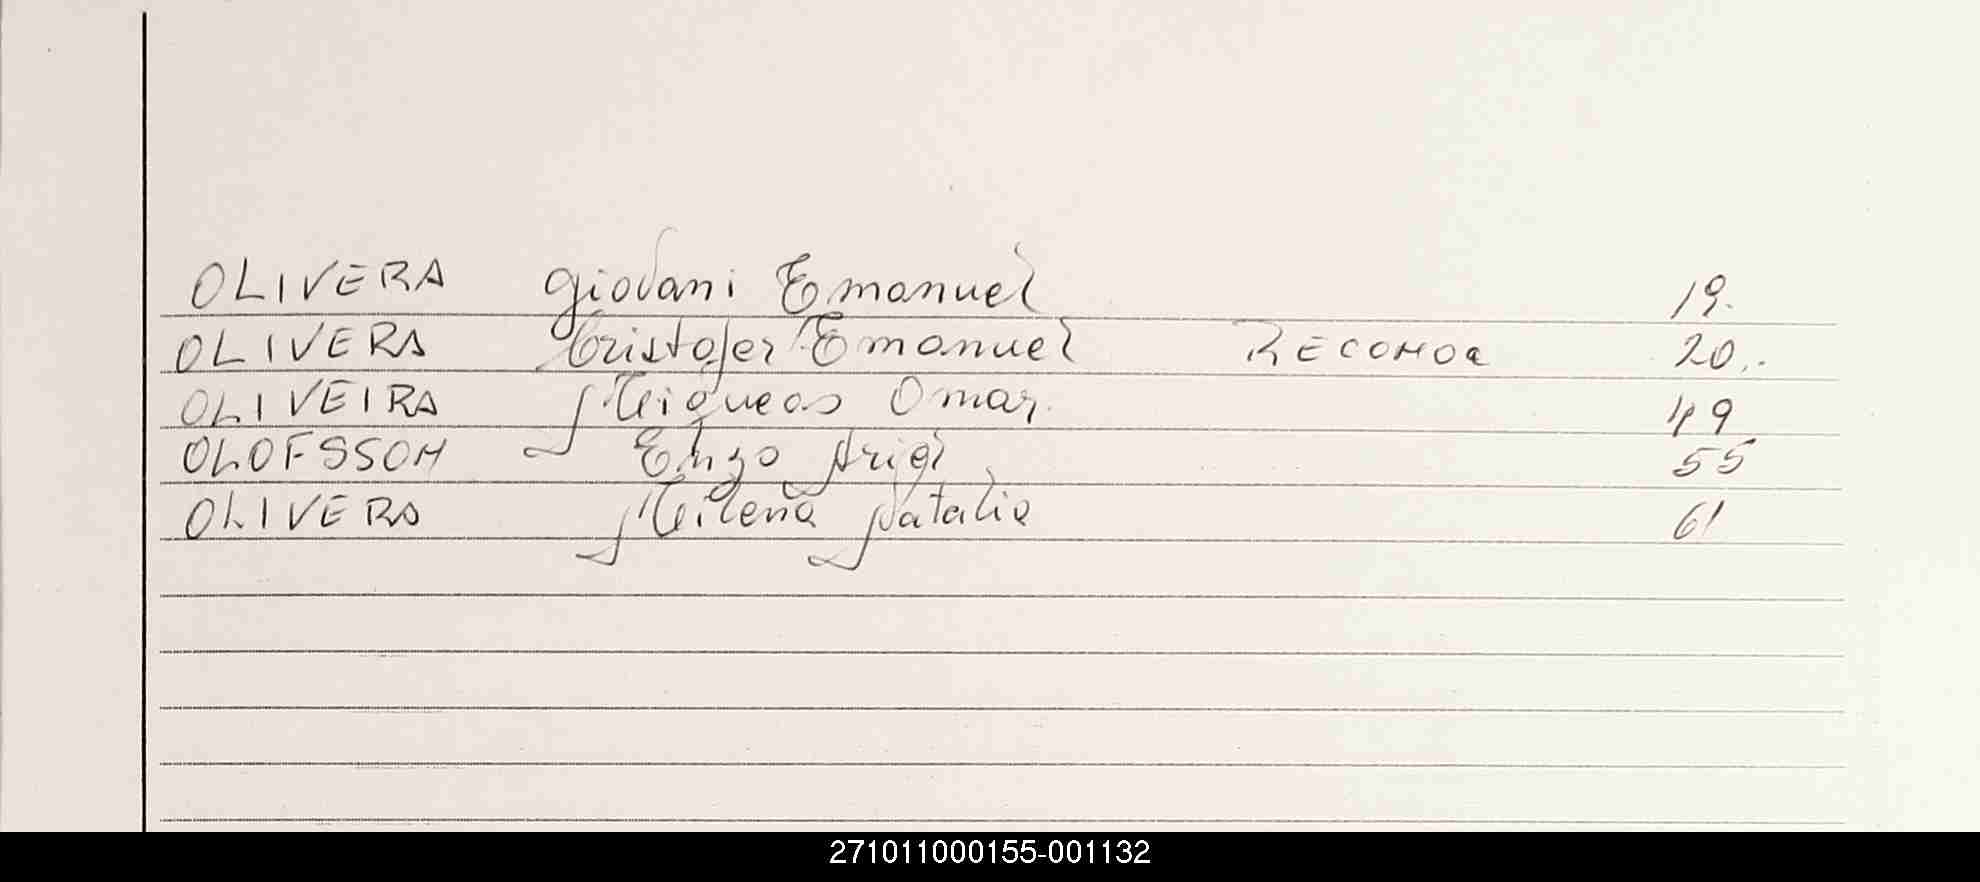 OLIVERA Giovani Emanuel 19.
OLIVERA Cristofer Emanuel RECONOC 20.
OLIVEIRA Miqueas Omar. 49
OLOFSSON Enzo Ariel 55
OLIVERA Milena Natalia 61
271011000155-001132